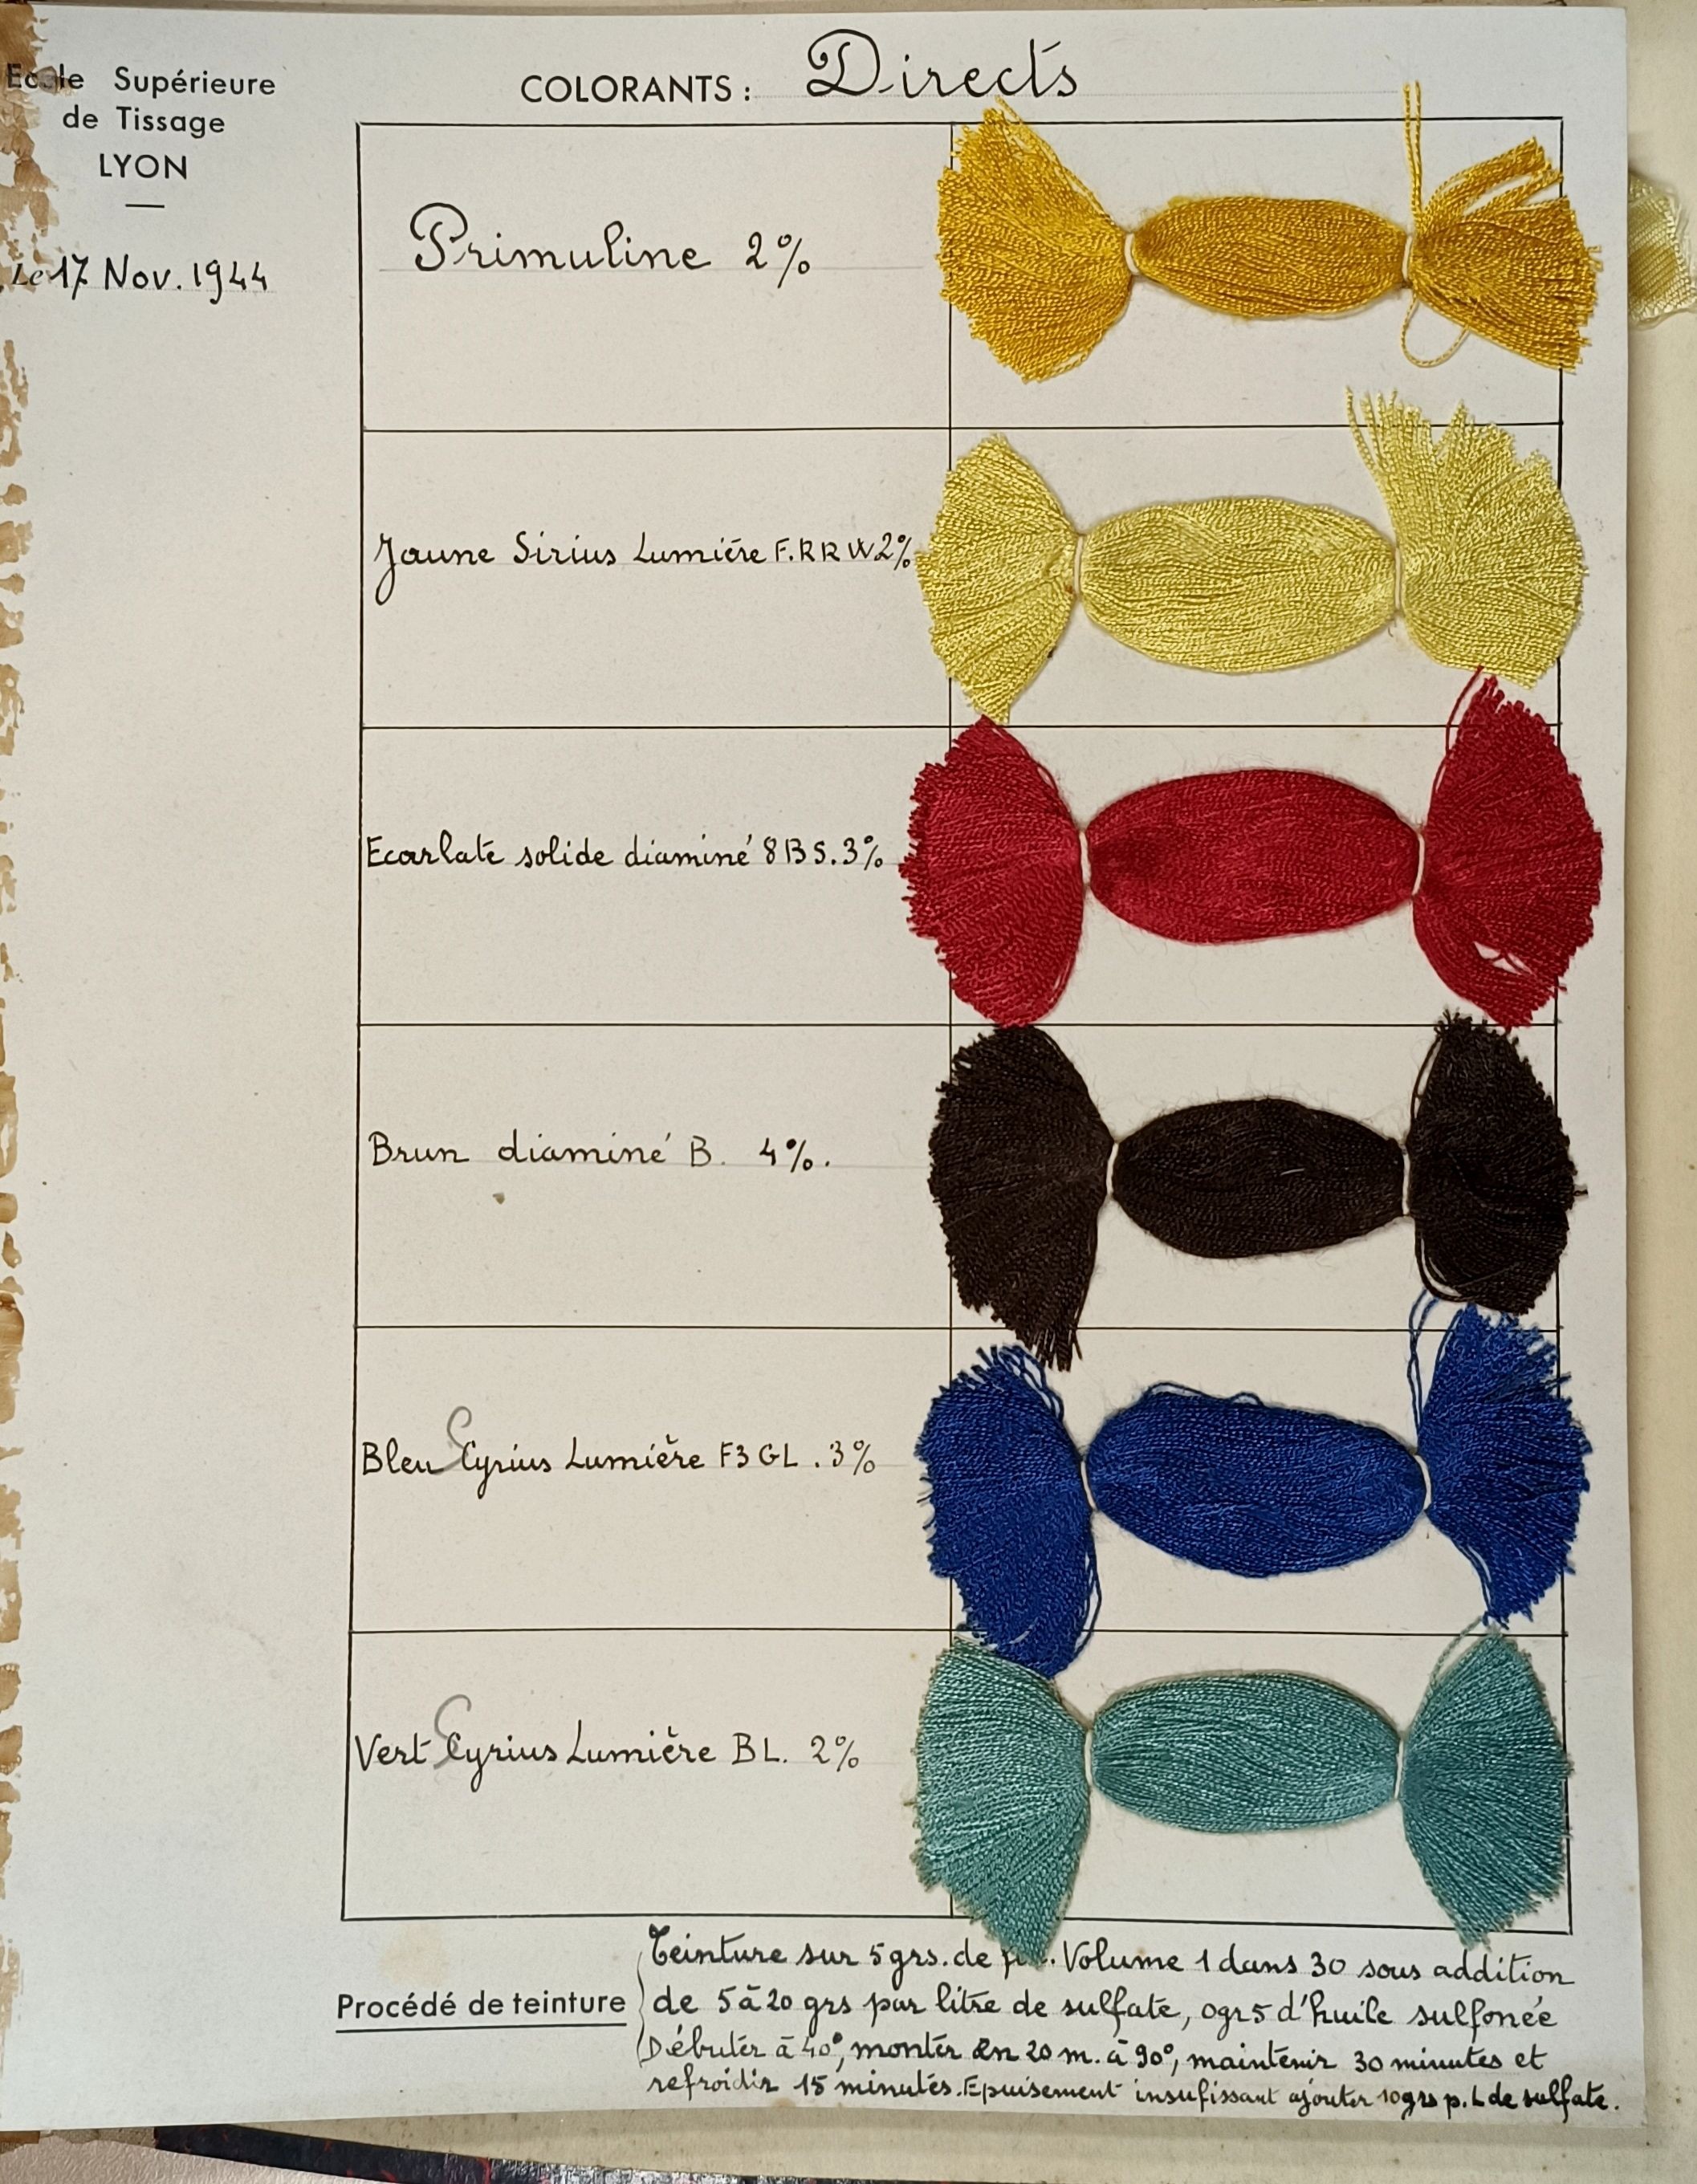 Ecole Supérieure
de Tissage
LYON
Le 17 Nov. 1944
COLORANTS : Directs
Primuline 2%
Jaune Sirius Lumière F.RRW 2%
Ecarlate solide diaminé 8BS. 3%
Brun diaminé B. 4%.
Bleu Cyrius Lumière F3GL . 3%
Vert Cyrius Lumière BL. 2%
Procédé de teinture
Teinture sur 5 grs. de Volume 1 dans 30 sous addition
de 5 à 20 grs par litre de sulfate, 0gr5 d'huile sulfonée
Débuter à 40°, monter en 20 m. à 90°, maintenir 30 minutes et
refroidir 15 minutes. Epuisement insufissant ajouter 10grs p. L de sulfate.